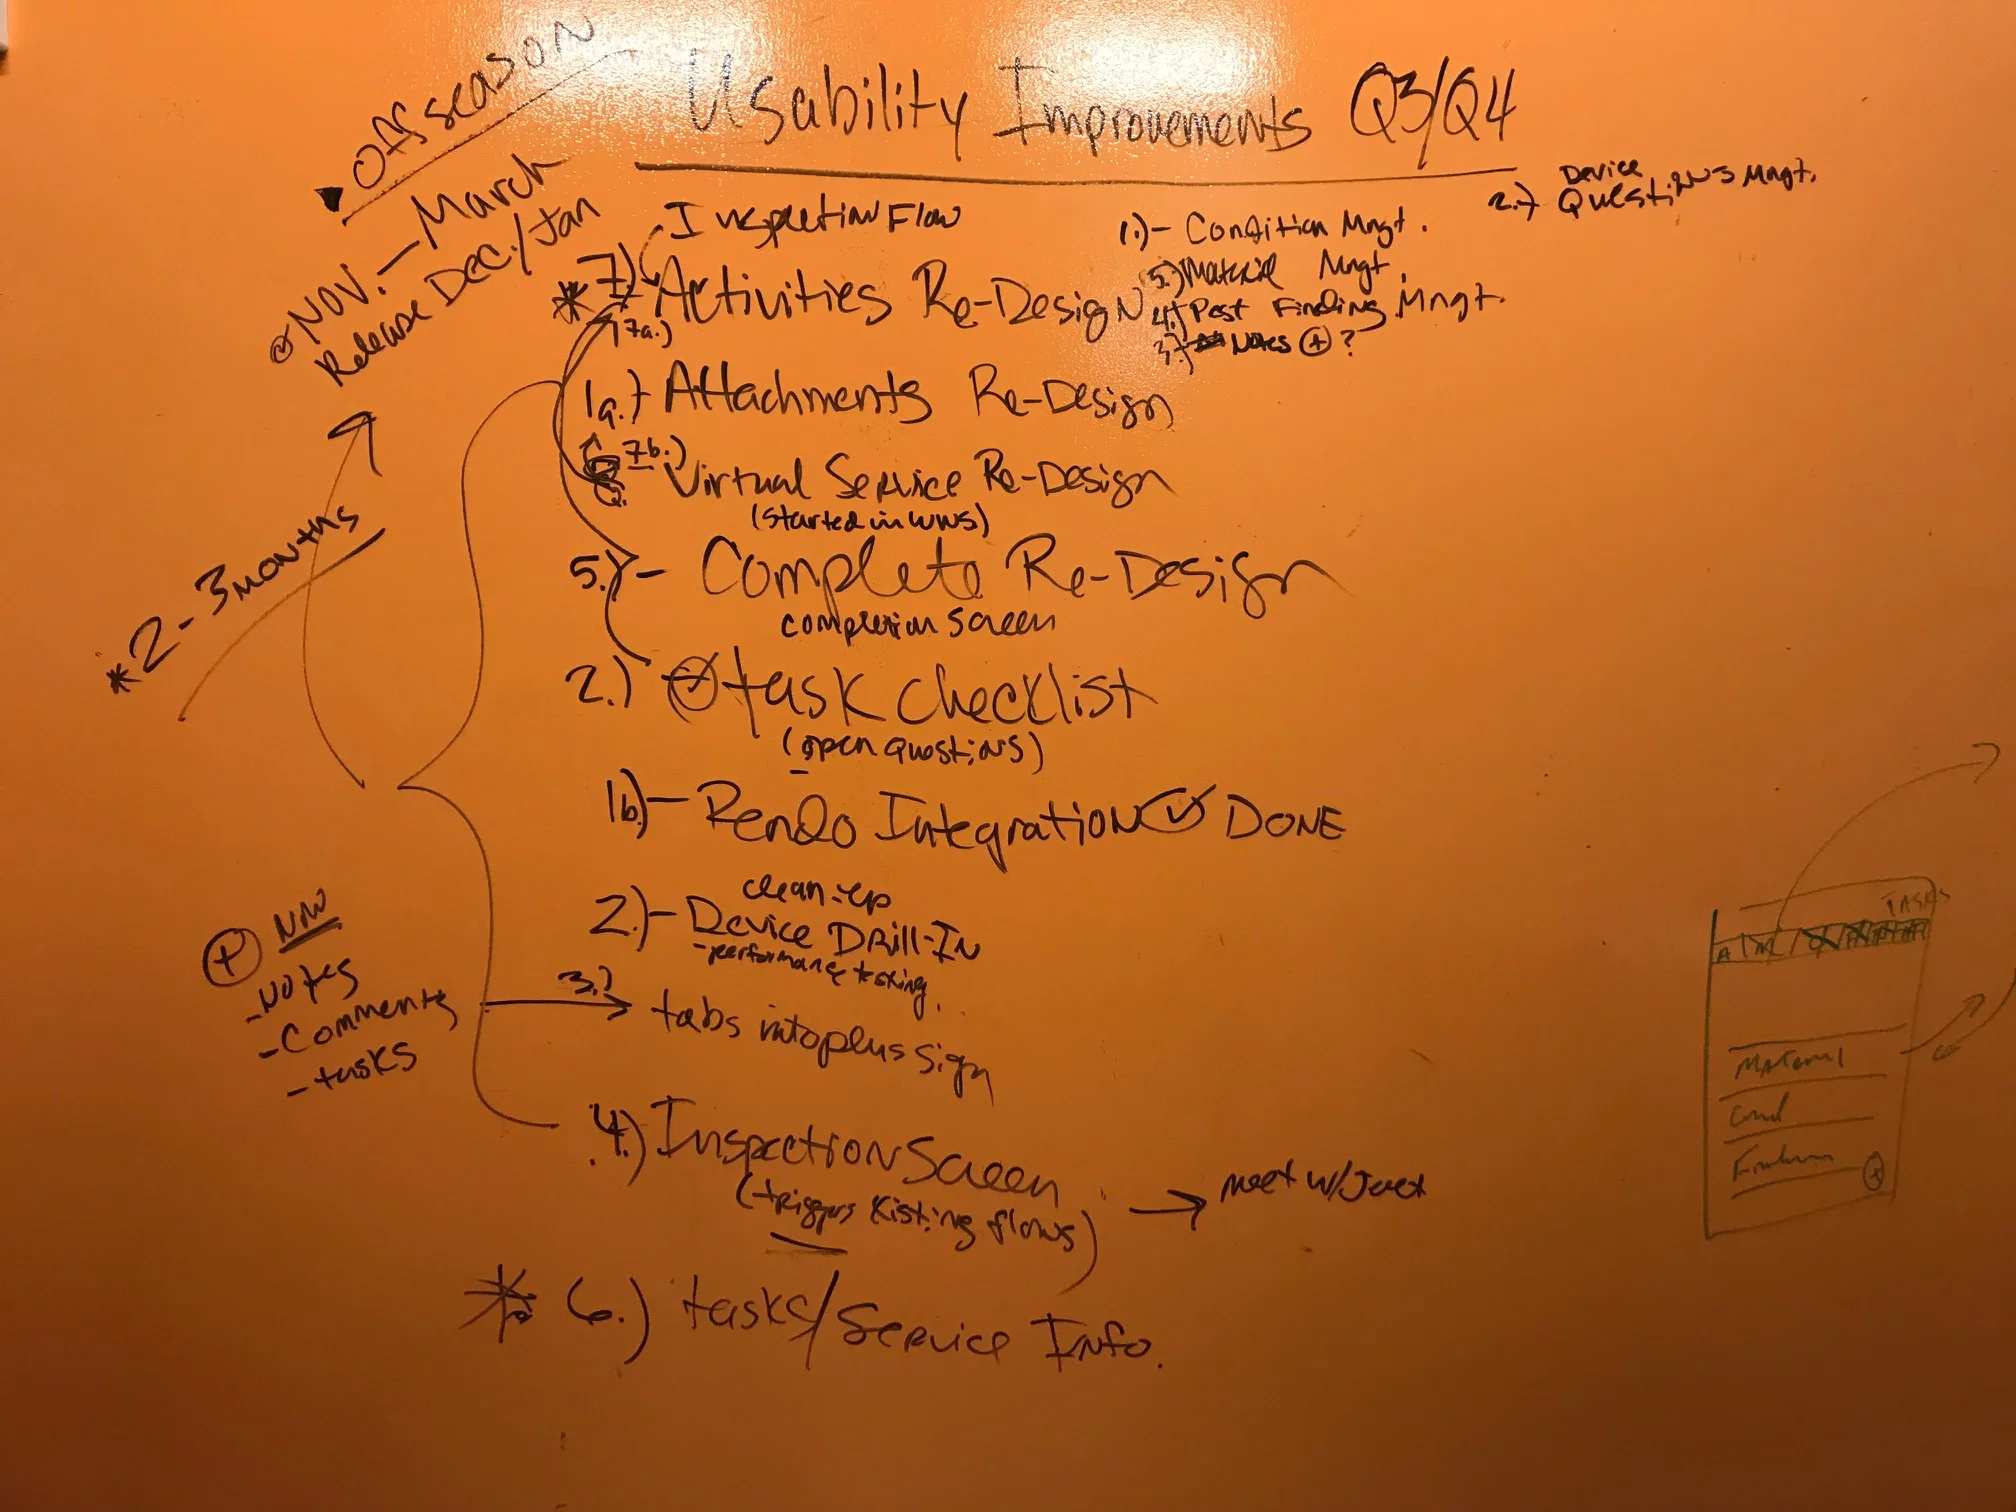 Offseason
Usability Improvements Q3/Q4
NOV. - March
Release DEC./Jan
Inspection Flow
1.) - Condition Mngt.
2.) Device
Questions Mngt.
5.) Material Mngt.
* 7.) Activities Re-Design
4.) Pest Finding Mngt.
7a.)
3.) Notes + ?
1a.) Attachments Re-Design
7b.) Virtual Service Re-Design
(started in WWS)
* 2-3 months
5.) - Complete Re-Design
completion screen
2.) task checklist
(open questions)
1b.) - Rendo Integration DONE
clean-up
2.) - Device Drill-In
- performance testing.
+
- Notes
- Comments
- tasks
3.) tabs into plus sign
4.) Inspection Screen
(triggers existing flows)
meet w/
* 6.) tasks/Service Info.
TASKS
A
Material
Cond
+